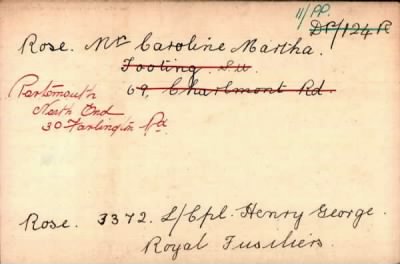 11/PP.
DP/124 R
Rose. Mrs Caroline Martha.
Tooting S.W.
69, Charlmont Rd
Portsmouth
North End
30 Farlington Rd.
Rose. 3372. L/Cpl. Henry George.
Royal Fusiliers.